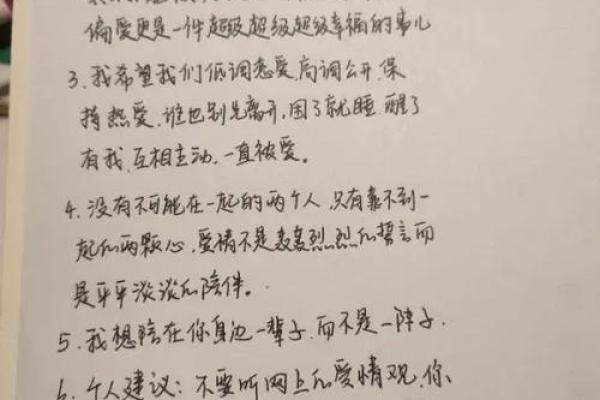 偏爱更是一件超级超级超级幸福的事儿
3.我希望我们低调恋爱,高调公开,保
持热爱,谁也别先离开,困了就睡,醒了
有我,互相主动,一直被爱。
4.没有不可能在一起的两个人,只有靠不到一
起的两颗心,爱情不是轰轰烈烈的誓言而
是平平淡淡的陪伴。
5.我想陪在你身边一辈子,而不是一阵子.
6.个人建议:不要听网上的爱情观,你、